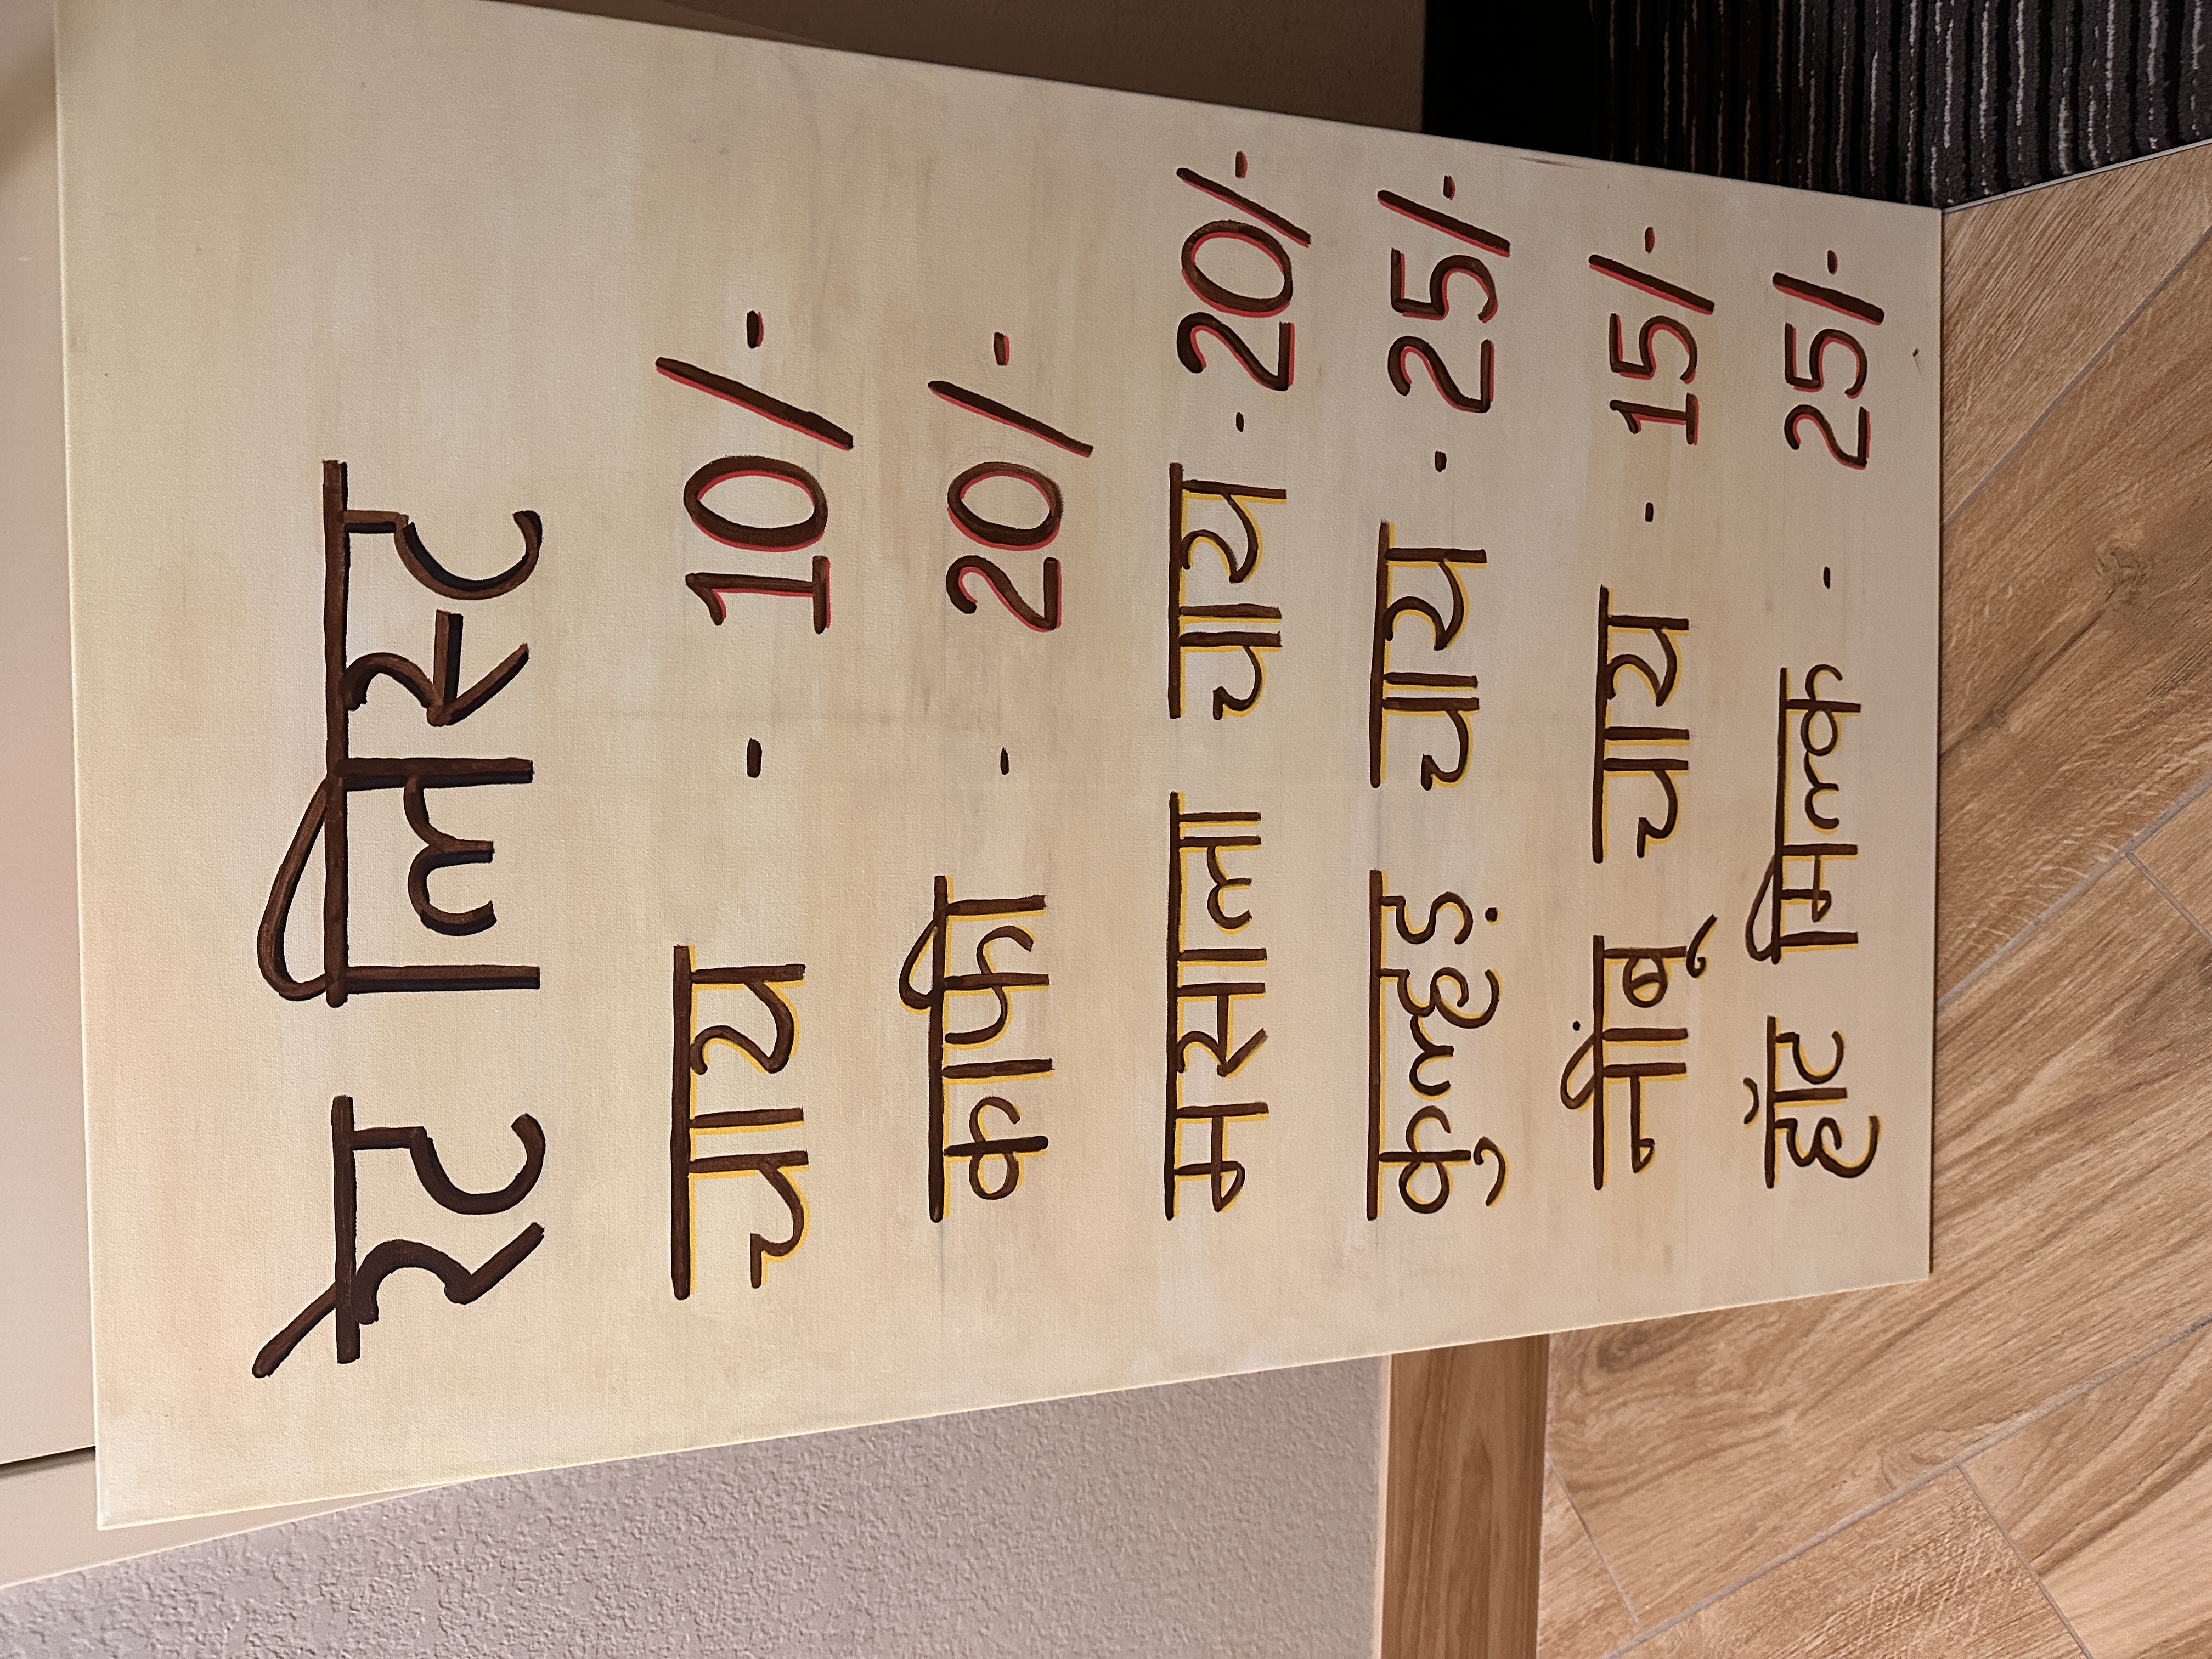 रेट लिस्ट
चाय - 10/-
काफी - 20/-
मसाला चाय - 20/-
कुल्हड़ चाय - 25/-
नींबू चाय - 15/-
हॉट मिल्क - 25/-